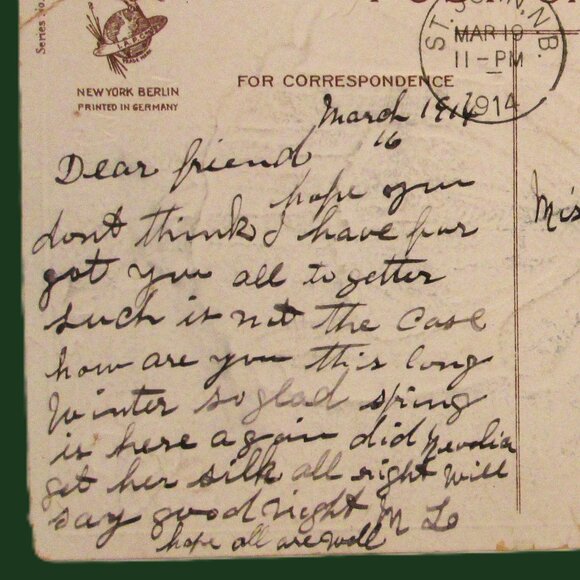 Series No.
ST. JOHN, N.B.
MAR 19
11-PM
1914
NEW YORK BERLIN
PRINTED IN GERMANY
FOR CORRESPONDENCE
March 1914
16
Dear friend
hope you
dont think I have for
got you all to getter
such is not the case
how are you this long
Winter so glad spring
is here again did
get her silk all right will
say good night M
hope all are well
Mis